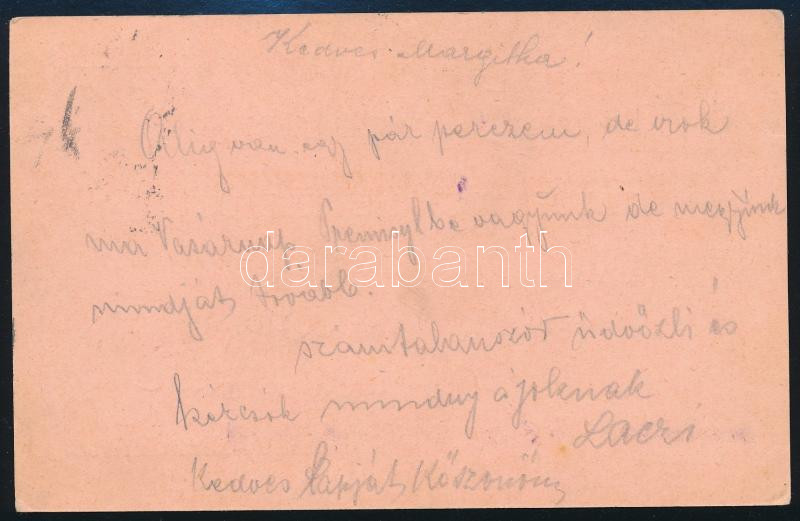 Kedves Margitka!
Alig van egy pár perczem, de irok
ma Vasárnap Premiylbe vagyunk de megyünk
mindját tovább.
darabanth
számtalanszor üdvözli és
mindnyájoknak
Laczi
Kedves Lapját Köszönöm